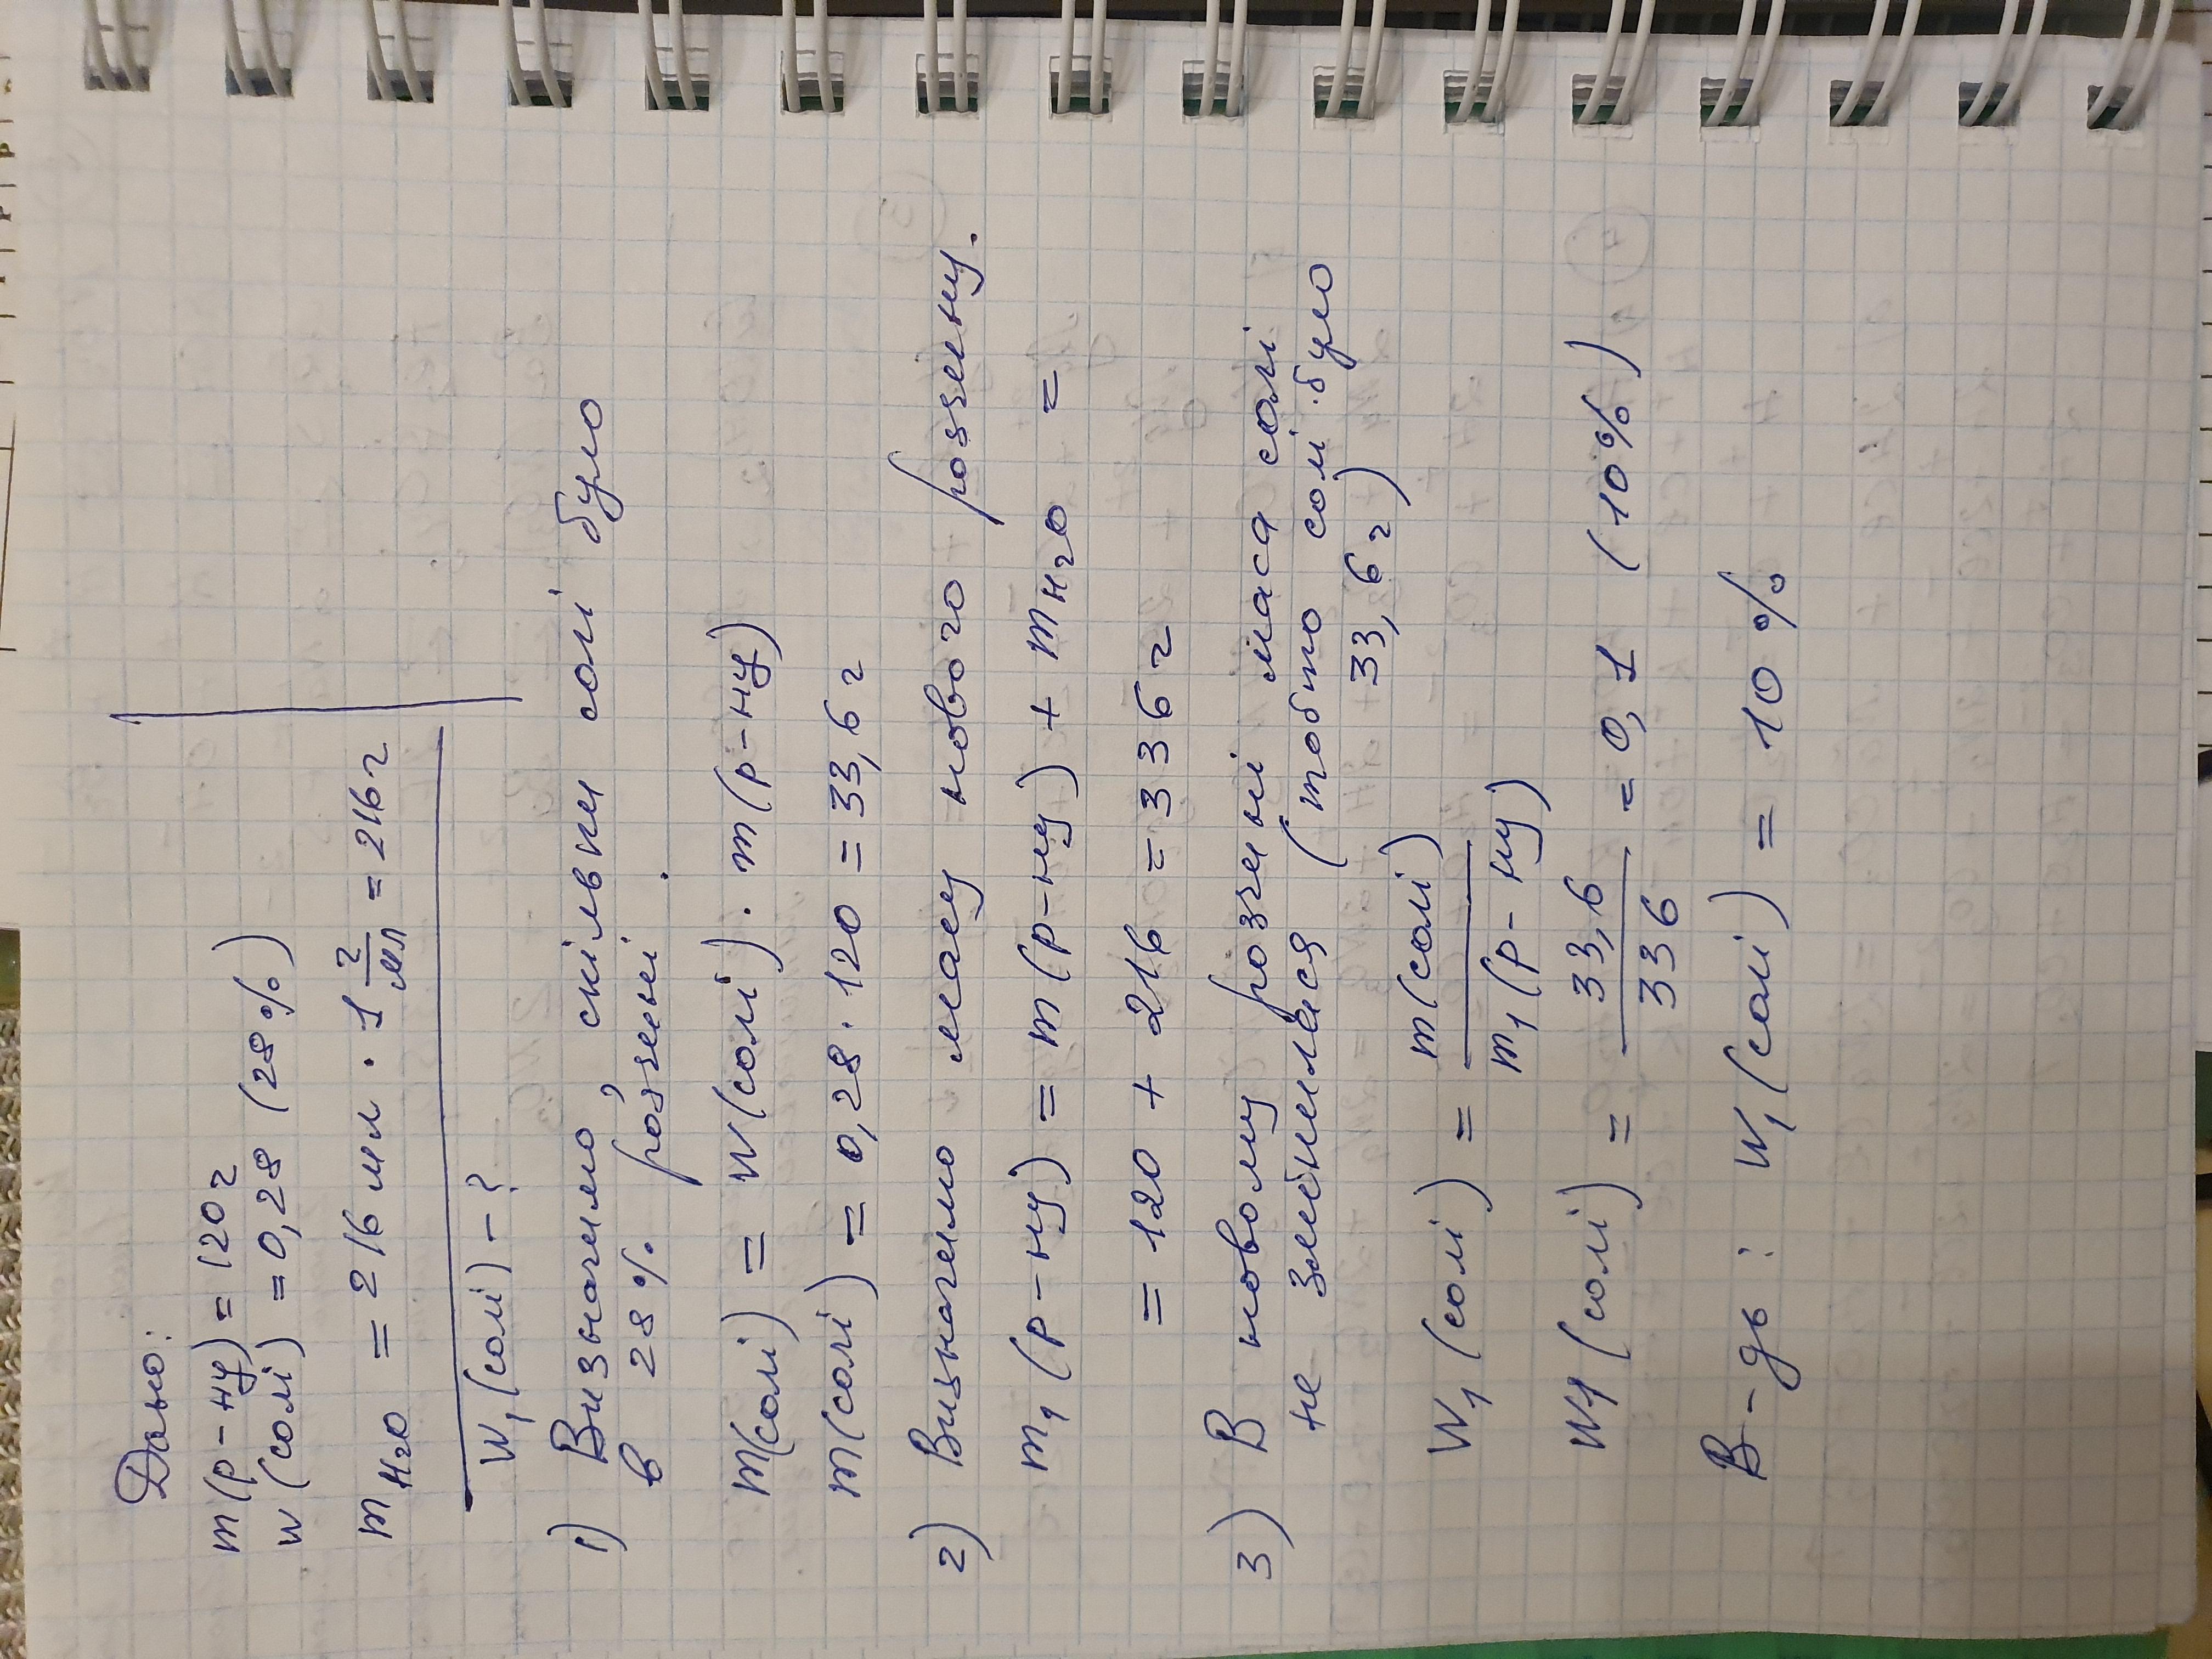 Дано:
m(р-ну) = 120 г
w(солі) = 0,28 (28%)
mH2O = 216 мл · 1 г/мл = 216 г
W1(солі) - ?
1) Визначемо, скільки солі було
в 28% розчині.
m(солі) = w(солі) · m(р-ну)
m(солі) = 0,28 · 120 = 33,6 г
2) Визначемо масу нового розчину.
m1(р-ну) = m(р-ну) + mH2O =
= 120 + 216 = 336 г
3) В новому розчині маса солі
не змінилася (тобто солі було
33,6 г)
W1(солі) = m(солі) / m1(р-ну)
W1(солі) = 33,6 / 336 = 0,1 (10%)
В-дь: W1(солі) = 10%